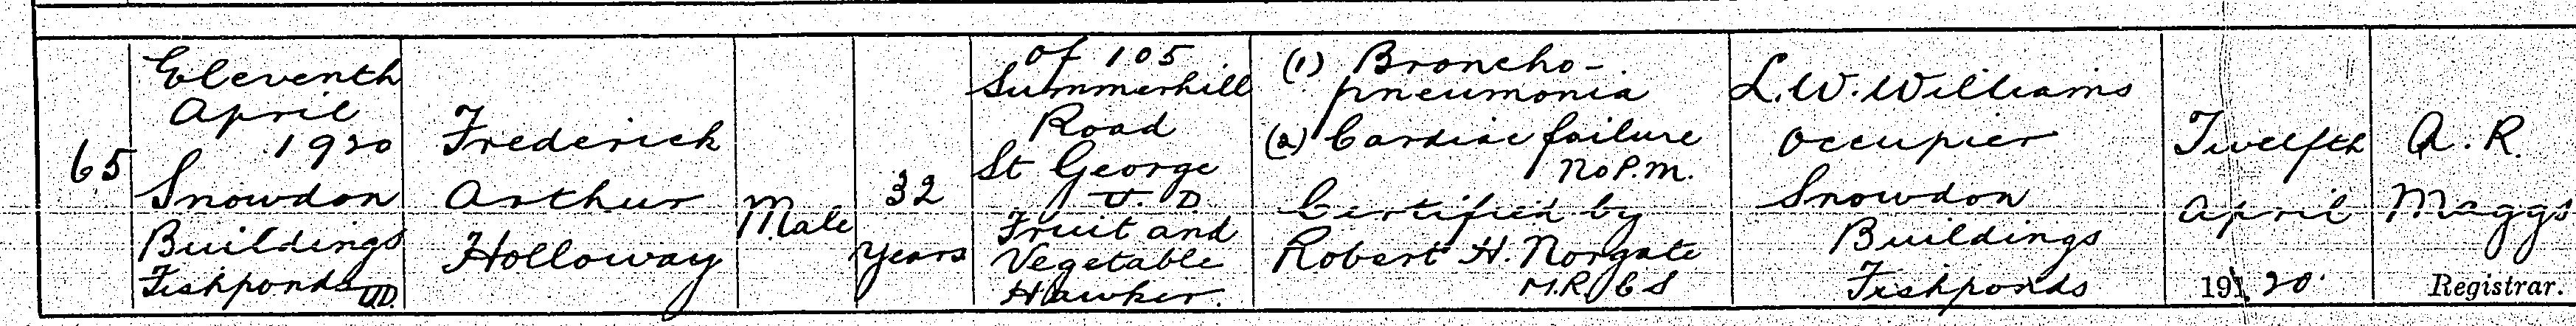 65
Eleventh
April
1920
Snowdon
Buildings
Fishponds U.D.
Frederick
Arthur
Holloway
Male
32
years
of 105
Summerhill
Road
St George
U. D.
Fruit and
Vegetable
Hawker.
(1) Broncho-
pneumonia
(2) Cardiac failure
No P.M.
Certified by
Robert H. Norgate
M.R.C.S
L.W. Williams
Occupier
Snowdon
Buildings
Fishponds
Twelfth
April
1920
A. R.
Maggs
Registrar.